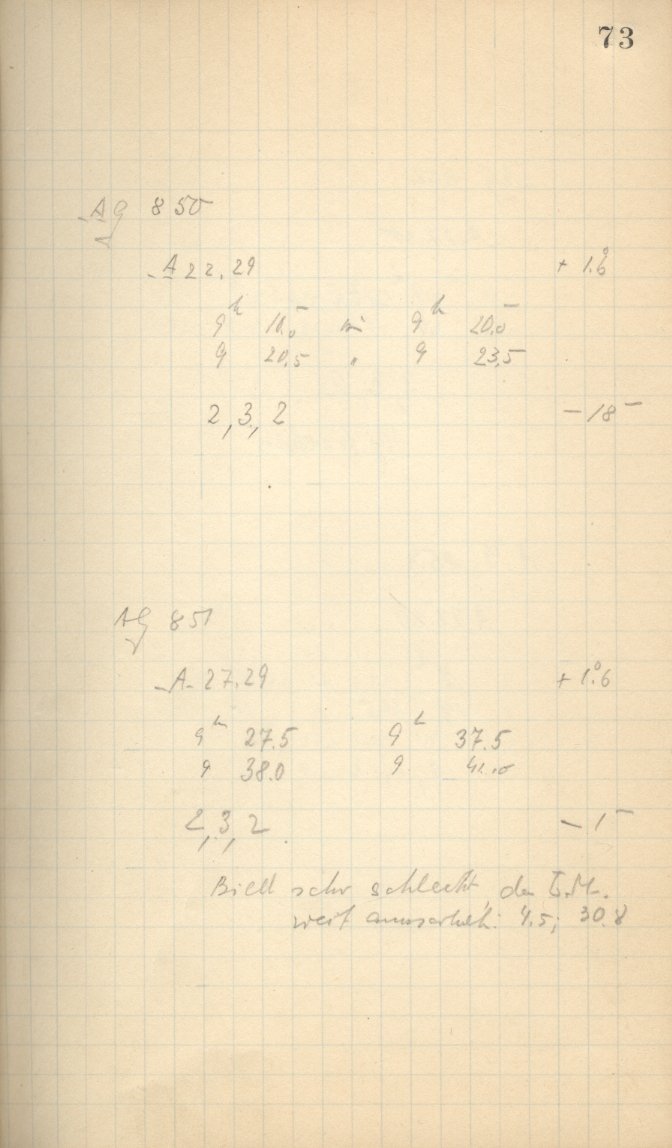 73
AG 850
A 22.29 + 1.°6
9h 10.5 bis 9h 20.5
9 20.5 " 9 23.5
2, 3, 2 – 18 –
AG 851
A. 27.29 + 1.°6
9h 27.5 9h 37.5
9 38.0 9 41.0
2, 3, 2 – 1 –
Bild sehr schlecht, da
weit ausserhalb: 4.5; 30.8